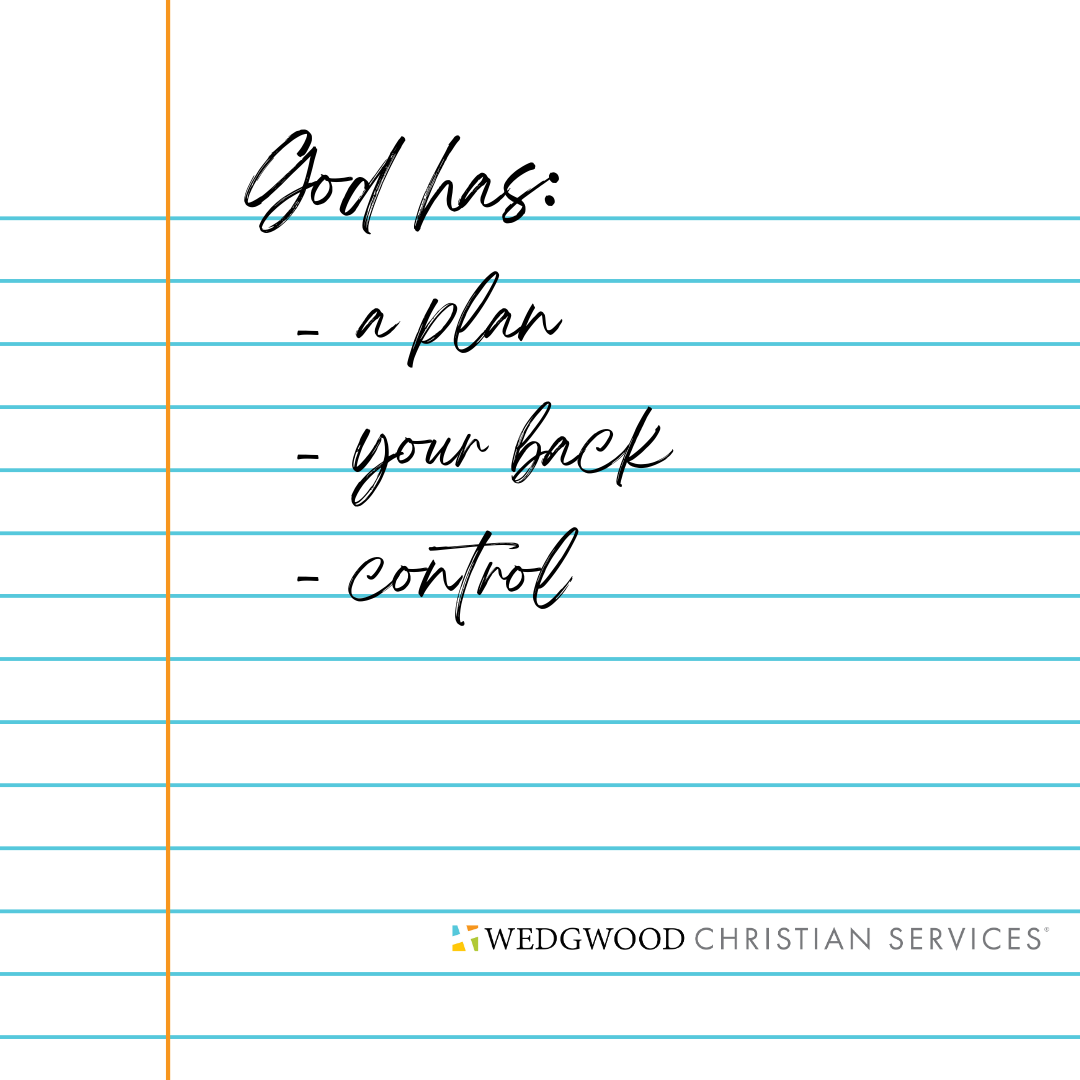 God has:
- a plan
- your back
- control
WEDGWOOD CHRISTIAN SERVICES®